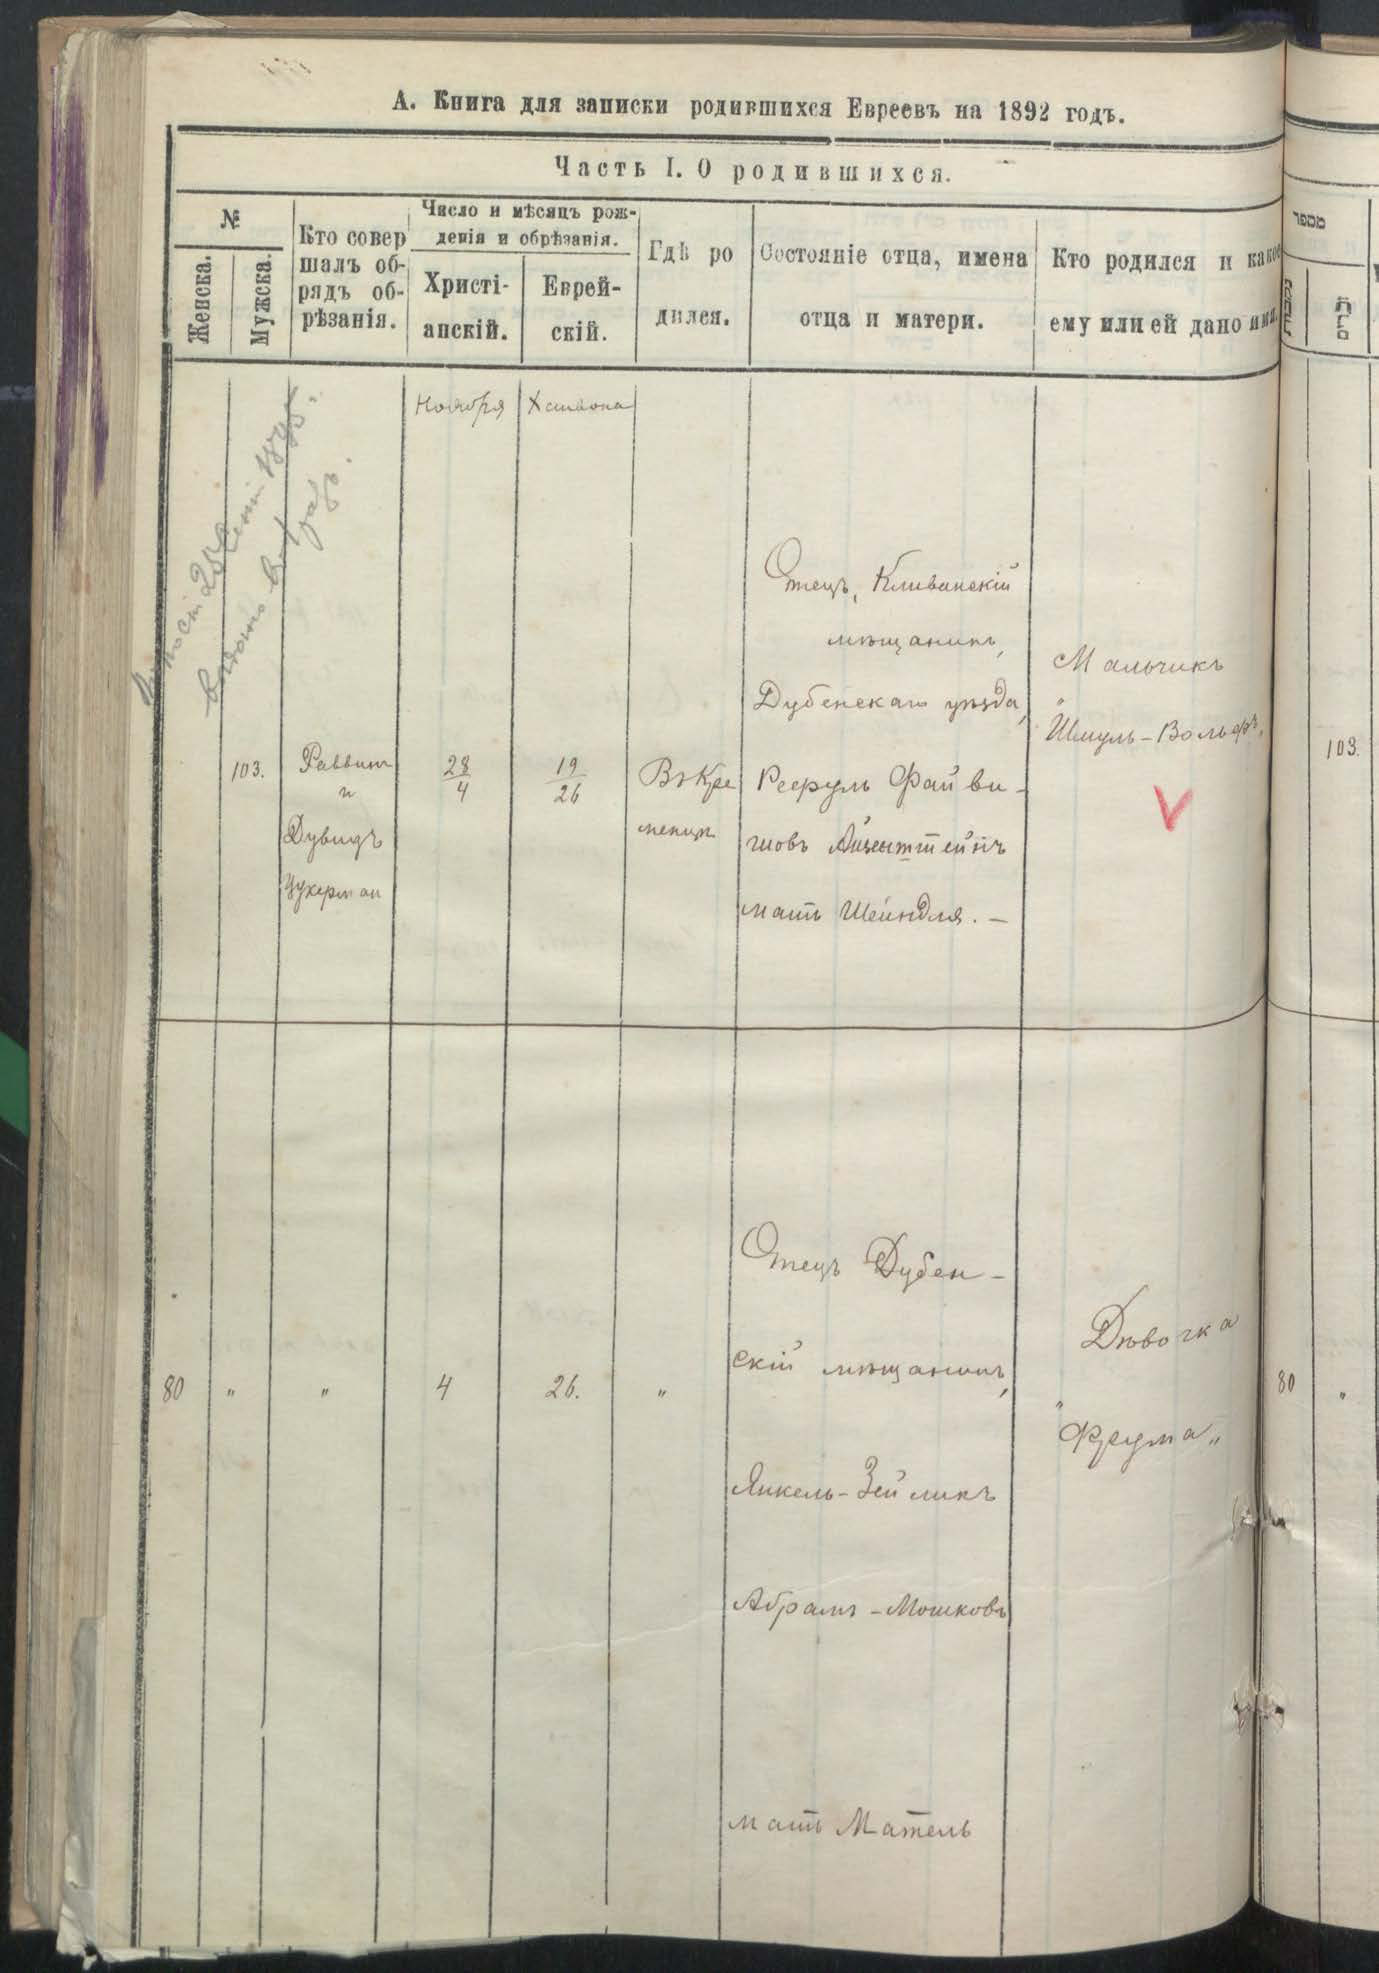 А. Книга для записки родившихся Евреевъ на 1892 годъ.
Часть I. О родившихся.
№
Женска.
Мужска.
Кто совер
шалъ об-
рядъ об-
рѣзанія.
Число и мѣсяцъ рож-
денія и обрѣзанія.
Христі-
анскій.
Еврей-
скій.
Гдѣ ро
дился.
Состояніе отца, имена
отца и матери.
Кто родился и какое
ему или ей дано имя.
מספר
זכרים
Ноября
Хешвона
103.
Раввин
и
Дувидъ
Цукерман
28
4
19
26
Въ Кре
менцѣ
Отецъ, Клеванскій
мѣщанинъ,
Дубенскаго уѣзда,
Файви-
шовъ Айзенштейнъ
мать Шейндля. —
Мальчикъ
„
Шмуль-Вольфъ„
103.
80
„
„
4
26.
„
Отецъ Дубен-
скій мѣщанинъ,
Янкель-Зейликъ
Абрамъ-Мошковъ
мать Матель
Дѣвочка
„Фрума„
80
„